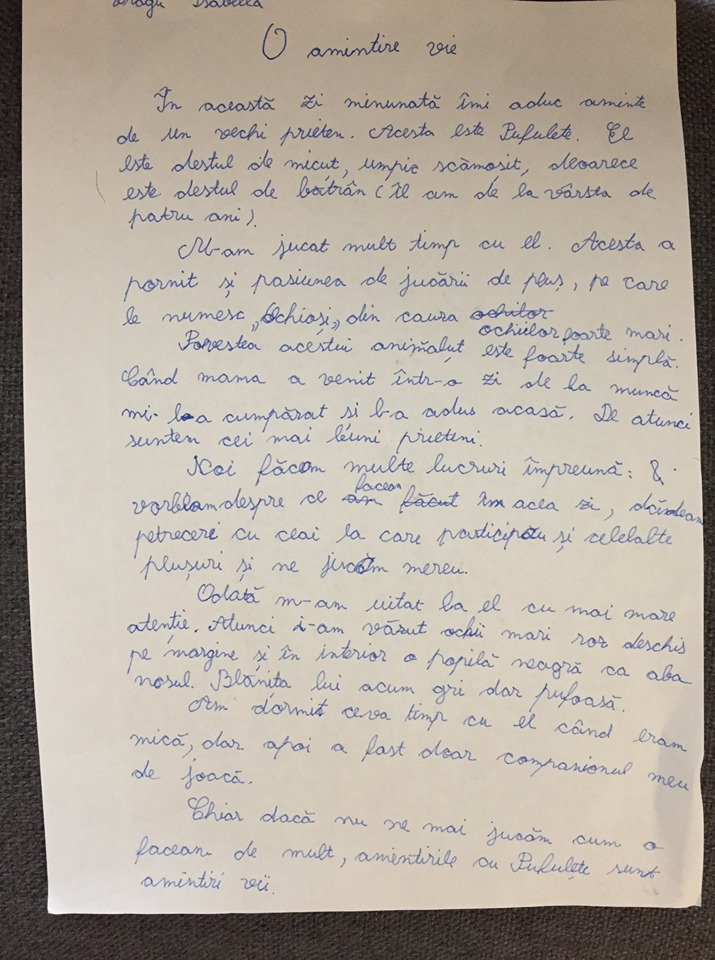 Dragu Isabella
O amintire vie
În această zi minunată îmi aduc aminte
de un vechi prieten. Acesta este Pufulete. El
este destul de micuț, umpic scămosit, deoarece
este destul de bătrân (Îl am de la vârsta de
patru ani).
M-am jucat mult timp cu el. Acesta a
pornit și pasiunea de jucării de pluș, pe care
le numesc „Ochioși„ din cauza ochilor
ochiilor foarte mari.
Povestea acestui animăluț este foarte simplă.
Când mama a venit într-o zi de la muncă
mi-l-a cumpărat si l-a adus acasă. De atunci
suntem cei mai buni prieteni.
Noi făceam multe lucruri împreună:
vorbeam despre ce am făcut facem în acea zi, dădeam
petreceri cu ceai la care participau și celelalte
plușuri și ne jucam mereu.
Odată m-am uitat la el cu mai mare
atenție. Atunci i-am văzut ochii mari roz deschis
pe margine și în interior o popilă neagră ca aba
nosul. Blănița lui acum gri dar pufoasă.
Am dormit ceva timp cu el când eram
mică, dar apoi a fost doar companionul meu
de joacă.
Chiar dacă nu ne mai jucăm cum o
faceam de mult, amintirile cu Pufulețe sunt
amintiri vii.